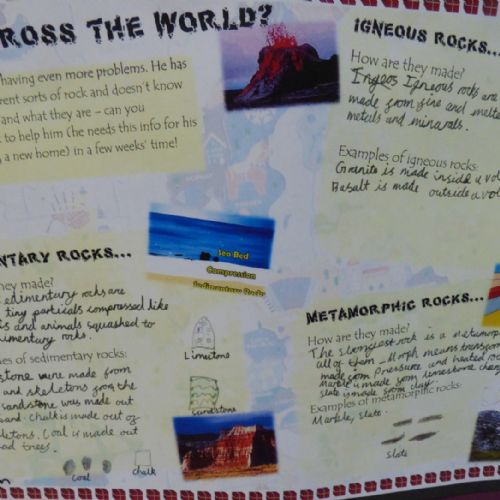 ROSS THE WORLD?
having even more problems. He has
erent sorts of rock and doesn't know
and what they are – can you
to help him (he needs this info for his
a new home) in a few weeks' time!
IGNEOUS ROCKS...
How are they made?
Igneous rocks are
made from fire and melte
metals and minarals.
Examples of igneous rocks:
Granite is made inside a vol
Basalt is made outside a vol
NTARY ROCKS...
hey made?
edimentary rocks are
tiny particals compressed like
s and animals squashed to
dimentary rocks.
es of sedimentary rocks:
stone were made from
and skeletons from the
sandstone was made out
and. Chalk is made out of
letons. Coal is made out
ad trees.
Coal
chalk
Sea Bed
Compression
Sedimentary Rocks
Limestone
sandstone
METAMORPHIC ROCKS...
How are they made?
The strongest rock is a metamorp
all of them - Morph means transform
made from Pressure and heated roc
Marble is made from limestone chang
slate is made from clay.
Examples of metamorphic rocks:
Marble, slate.
slate